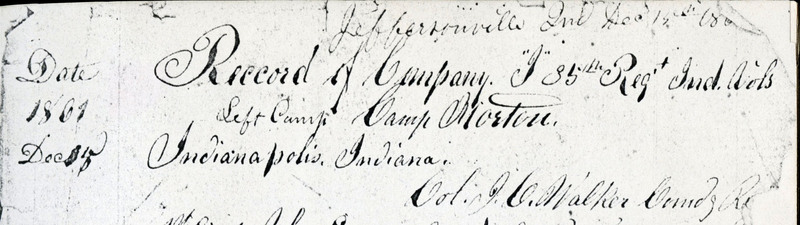 Jeffersonville Ind Dec 12th 186
Date Reccord of Company. "I" 35th Reg't Ind. Vols
1861 Left Camp Camp Morton.
Dec Indianapolis. Indiana.
Col. J. C. Walker Comdg Re